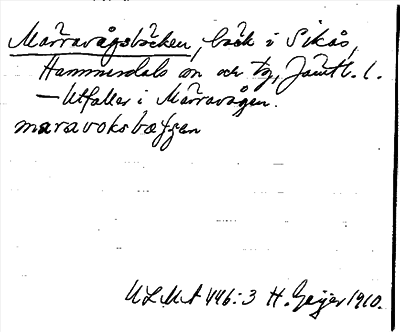 Märravågsbäcken, bäck i Sikås,
Hammerdals sn och tg, Jämtl. l.
— Utfaller i Märravågen.
maravoksbæςςen
ULMA 446:3 H. Geijer 1910.